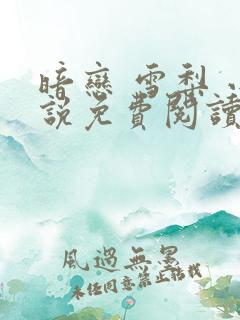 暗戀 雪梨 小
說免費閱讀
風過無罣
未經同意禁止轉載